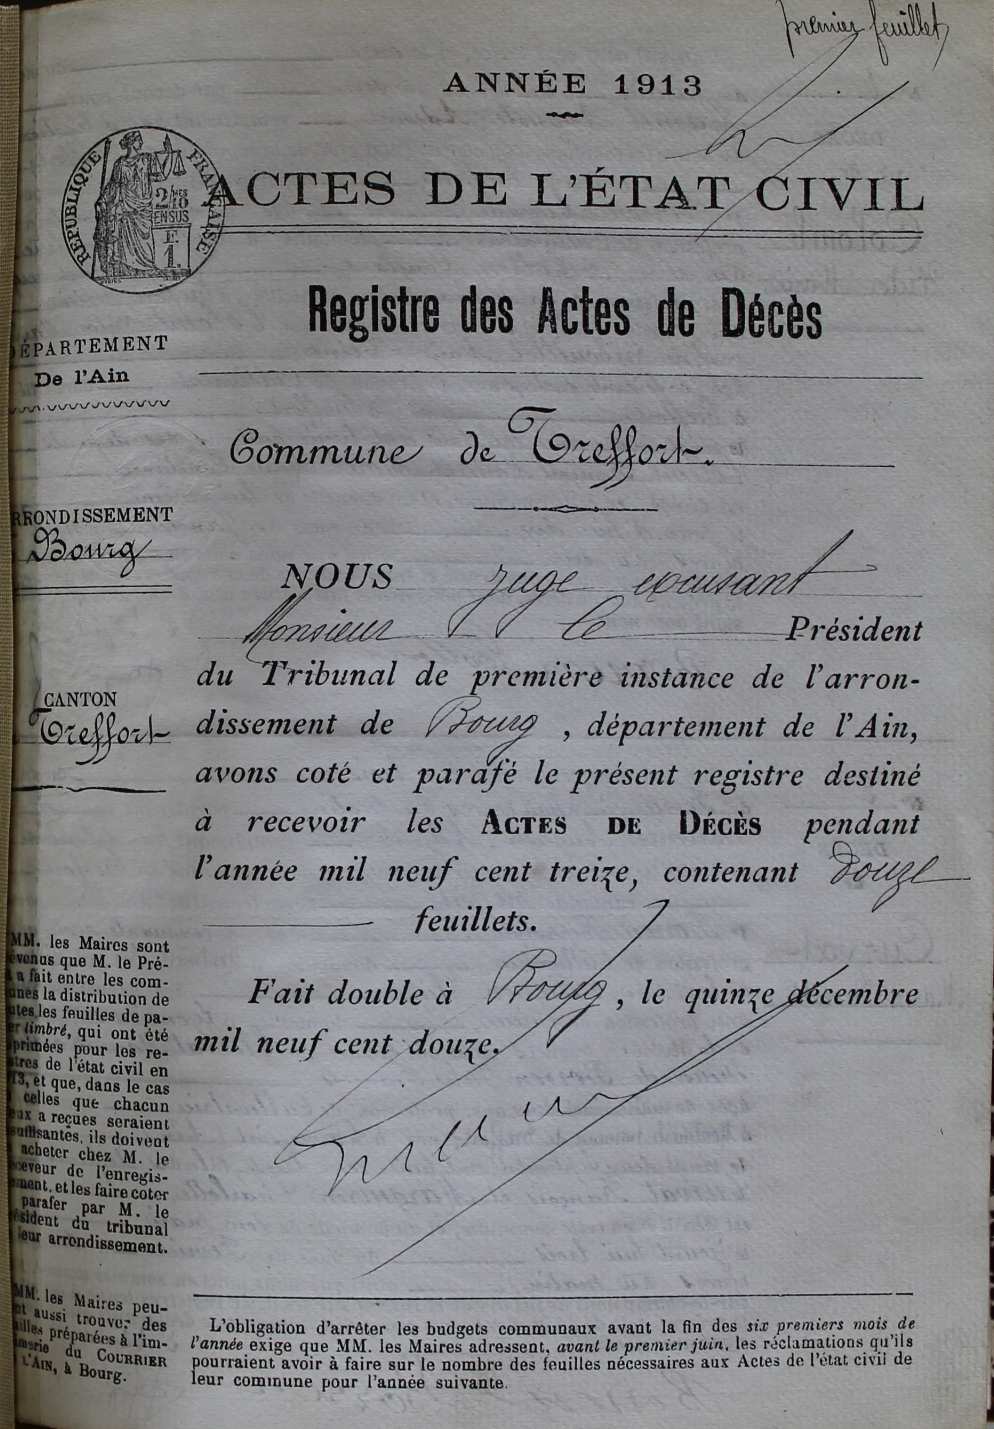 premier feuillet
ANNÉE 1913
RÉPUBLIQUE FRANÇAISE
ACTES DE L'ÉTAT CIVIL
Registre des Actes de Décès
DÉPARTEMENT
De l'Ain
Commune de Treffort.
ARRONDISSEMENT
Bourg
CANTON
Treffort
NOUS juge excusant
Monsieur le Président
du Tribunal de première instance de l'arron-
dissement de Bourg, département de l'Ain,
avons coté et parafé le présent registre destiné
à recevoir les ACTES DE DÉCÈS pendant
l'année mil neuf cent treize, contenant douze
feuillets.
Fait double à Bourg, le quinze décembre
mil neuf cent douze.
MM. les Maires sont
evenus que M. le Pré-
a fait entre les com-
unes la distribution de
utes les feuilles de pa-
er timbré, qui ont été
primées pour les re-
stres de l'état civil en
13, et que, dans le cas
celles que chacun
eux a reçues seraient
suffisantes, ils doivent
acheter chez M. le
ceveur de l'enregis-
ment, et les faire coter
parafer par M. le
ésident du tribunal
leur arrondissement.
MM. les Maires peu-
nt aussi trouver des
uilles préparées à l'im-
imerie du COURRIER
L'AIN, à Bourg.
L'obligation d'arrêter les budgets communaux avant la fin des six premiers mois de
l'année exige que MM. les Maires adressent, avant le premier juin, les réclamations qu'ils
pourraient avoir à faire sur le nombre des feuilles nécessaires aux Actes de l'état civil de
leur commune pour l'année suivante.